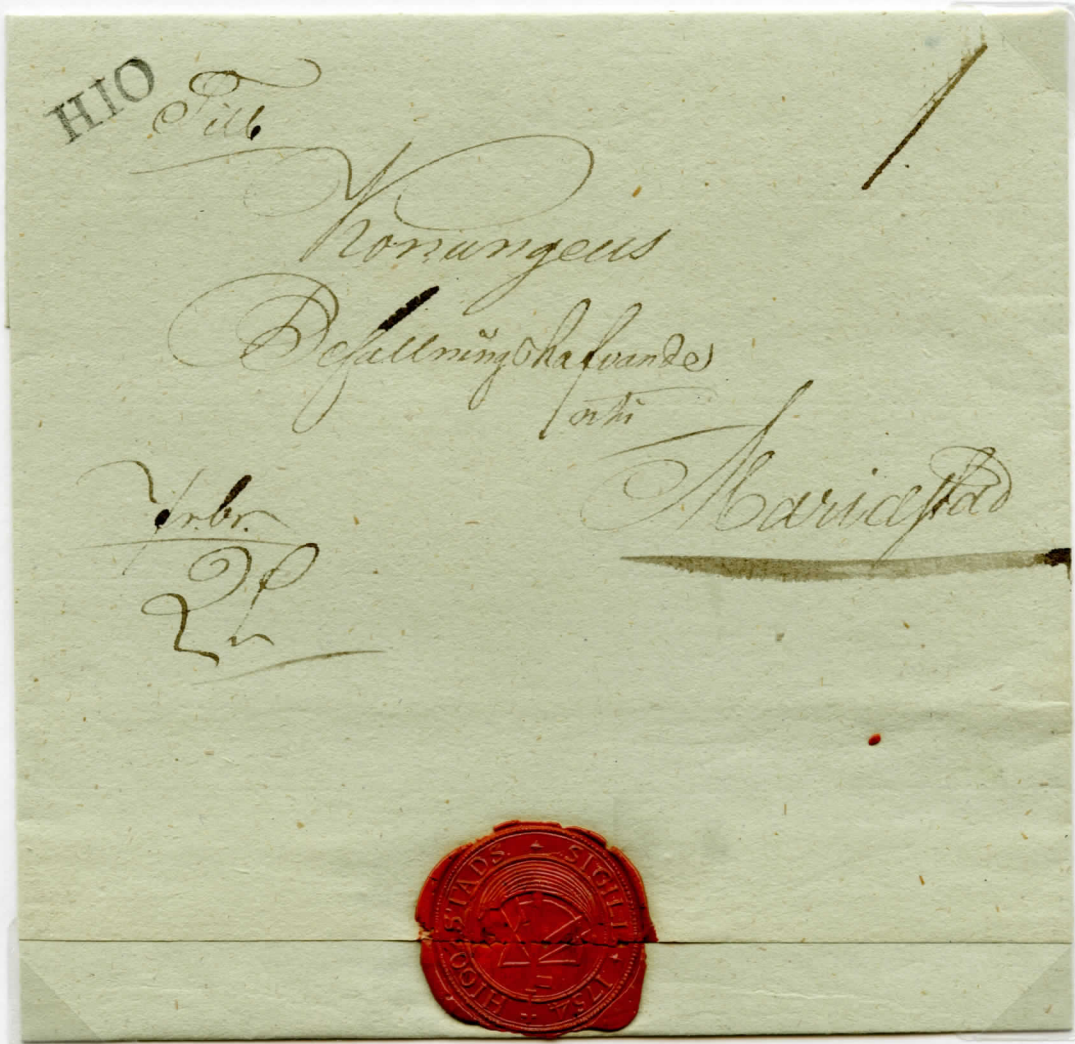 HIO
Till
Konungens
Befallningshafvande
uti
Mariæstad
Frbr.
HIOO STADS SIGILL 1754